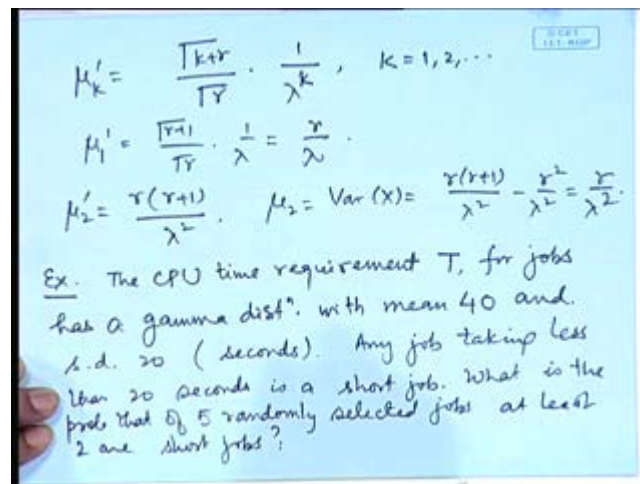 μ'ₖ = Γk+r / Γr · 1 / λᵏ , K = 1, 2, ...
μ'₁ = Γr+1 / Γr · 1 / λ = r / λ .
μ'₂ = r(r+1) / λ² . μ₂ = Var (X) = r(r+1) / λ² - r² / λ² = r / λ² .
Ex. The CPU time requirement T, for jobs
has a gamma distⁿ. with mean 40 and
s.d. 20 (seconds). Any job taking less
than 20 seconds is a short job. What is the
prob. that of 5 randomly selected jobs at least
2 are short jobs?